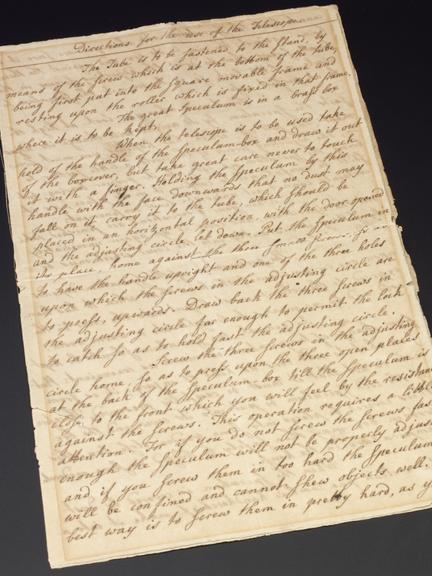 Directions for the use of the Telescope
The Tube is to be fastened to the Stand, by
means of the screw which is at the bottom of the tube,
being first put into the square movable frame and
resting upon the roller which is fixed in that frame.
The great Speculum is in a brass box
where it is to be kept.
When the telescope is to be used take
hold of the handle of the Speculum-box and draw it out
of the boxcover, but take great care never to touch
it with a finger. Holding the Speculum by this
handle with the face downwards that no dust may
fall on it, carry it to the tube, which should be
placed in an horizontal position, with the door opened
and the adjusting circle, let down. Put the Speculum in
its place, home against the three so as
to have the handle upright and one of the three holes
upon which the screws in the adjusting circle are
to press, upwards. Draw back the three screws in
the adjusting circle far enough to permit the lock
to catch so as to hold fast the adjusting circle.
Screw the three screws in the adjusting
circle home, so as to press upon the three open places
at the back of the Speculum-box till the Speculum is
close to the front which you will feel by the resistance
against the screws. This operation requires a little
attention. For if you do not screw the screws fast
enough the Speculum will not be properly adjus
and if you screw them in too hard the Speculum
will be confined and cannot shew objects well.
best way is to screw them in pretty hard, as y